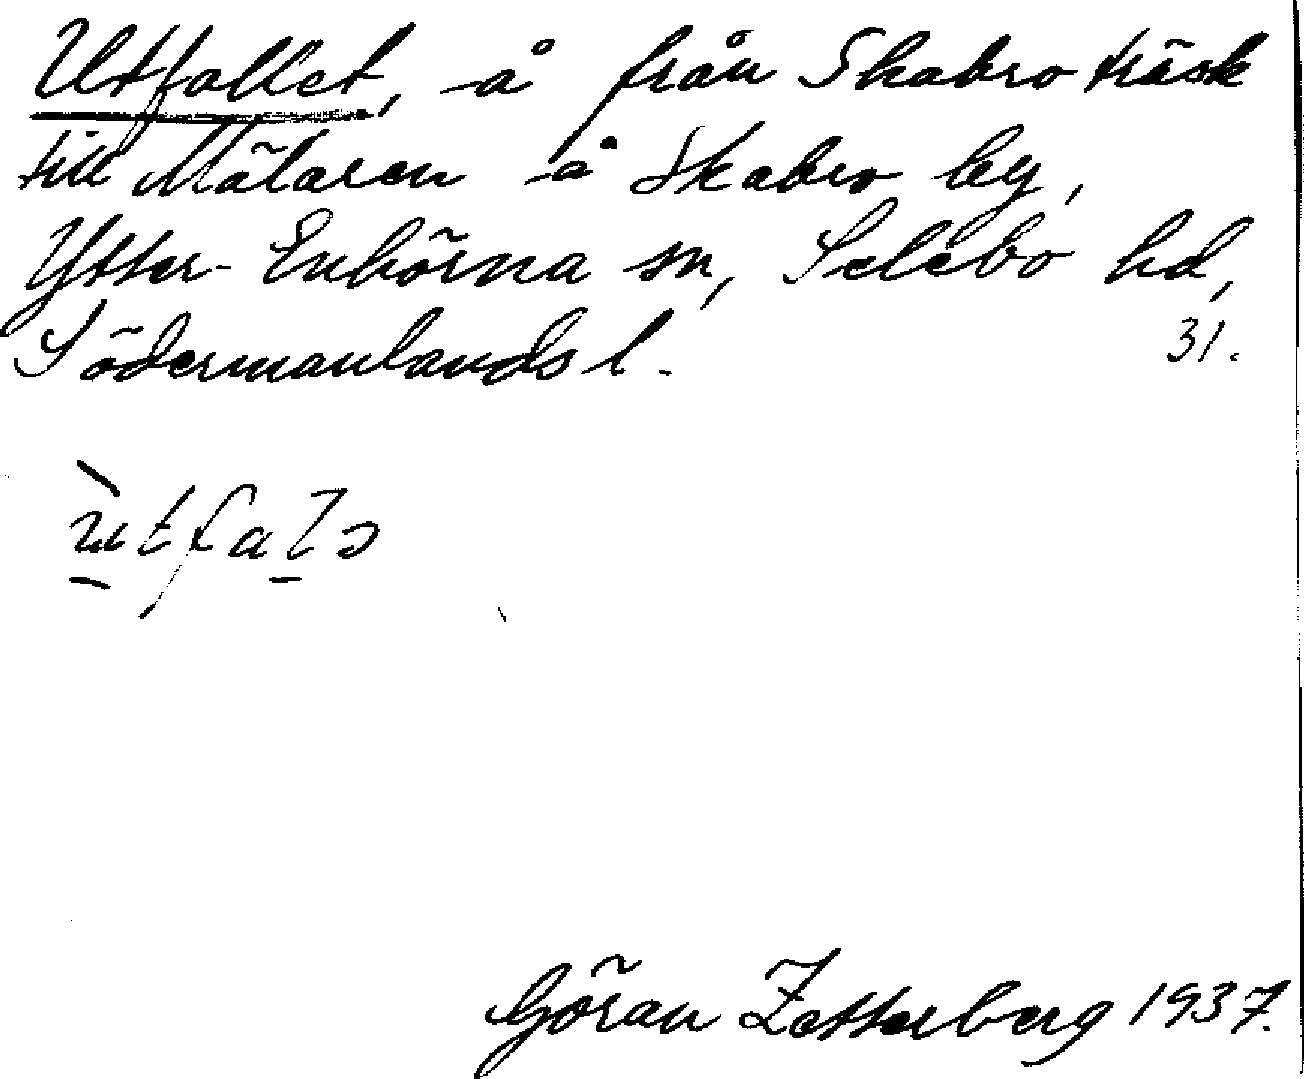 Utfallet, å från Skabro träsk
till Mälaren å Skabro by,
Ytter-Enhörna sn, Selebo hd,
Södermanlands l. 31.
ùtfalə
Göran Zetterberg 1937.